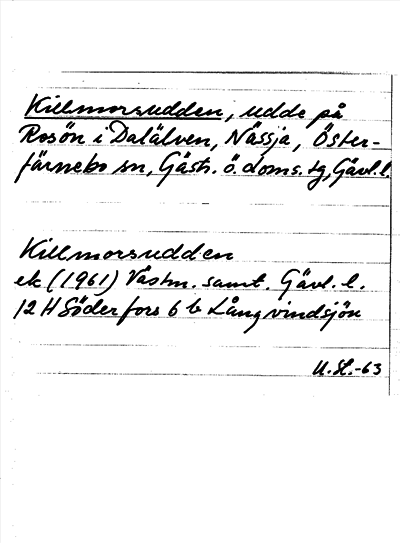 Killmorsudden, udde på
Rosön i Dalälven, Nässja, Öster-
färnebo sn, Gästr. ö. doms. tg, Gävl. l.
Killmorsudden
ek (1961) Västm. samt. Gävl. l.
12 H Söderfors 6 b Långvindsjön
U.H.-63